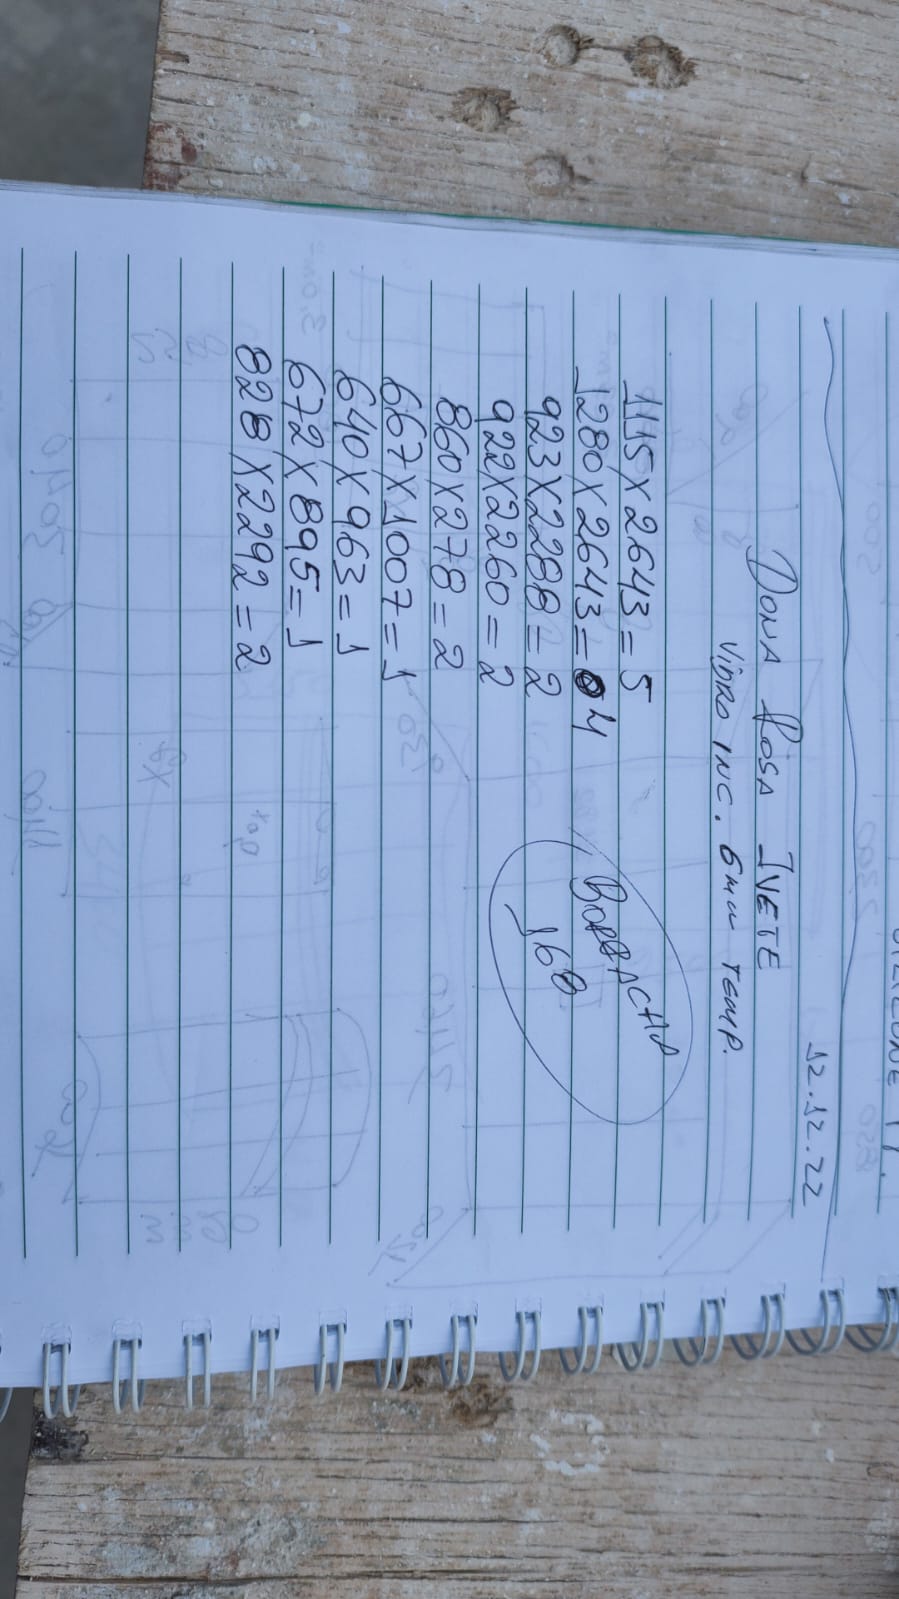 12.12.22
DONA ROSA IVETE
VIDRO INC. 6mm TEMP.
1115 X 2643 = 5
1280 X 2643 = 04
923 X 288 = 2
922 X 2260 = 2
860 X 278 = 2
667 X 1007 = 1
640 X 963 = 1
672 X 895 = 1
828 X 2292 = 2
BORRACHA
160